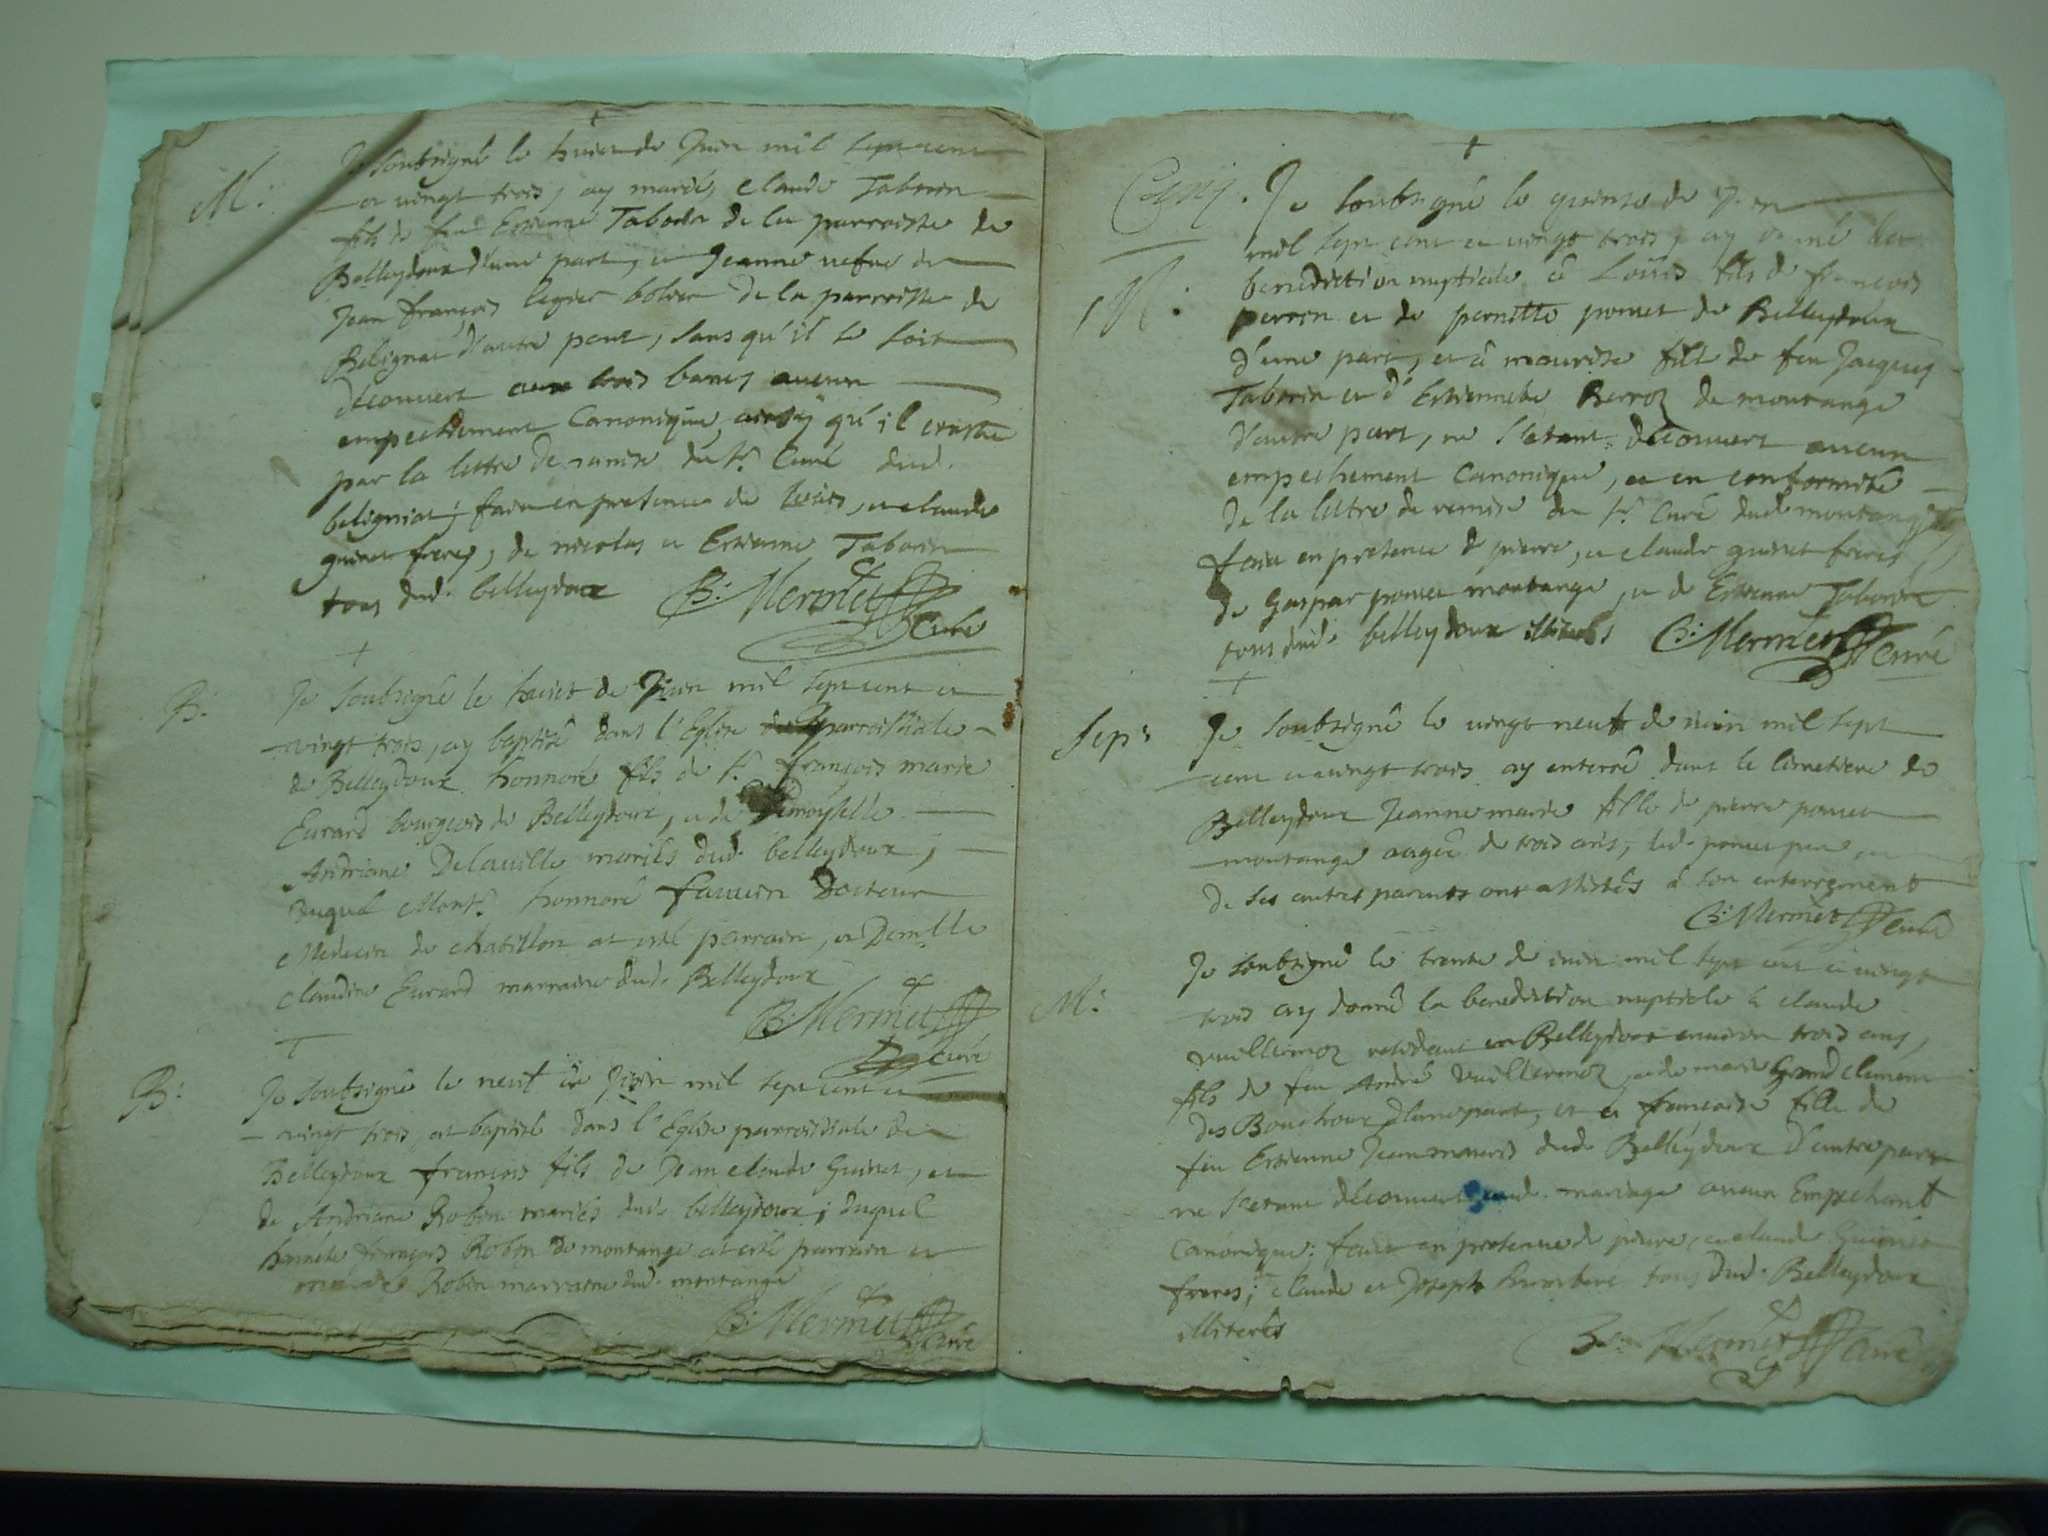 M: Je soubsigné le huict de Juin mil sept cent
et vingt trois, ay mariés Claude Taborin
fils de feu Estienne Taborin de la parroisse de
Belleydoux d'une part, et Jeanne vefve de
Jean françois
Belignat d'autre part, sans qu'il se soit
découvert aux trois bancs aucun
empechement Canonique, ainsy qu'il
par la lettre de remise du Sr. Curé dud.
belignat; fait en presence de Louis, et claude
guinet freres, de nicolas et Estienne Taborin
tous dud. belleydoux B: Mermet
Curé
B: Je soubsigné le huict de Juin mil sept cent et
vingt trois, ay baptisé dans l'Eglise parroissiale
de Belleydoux honnoré fils de Sr. françois marie
Eurard bourgeois de Belleydoux, et de Demoyselle
Andriane Delaville mariés dud. belleydoux;
Duquel Monsr. honnoré fauvin Docteur
Medecin de chatillon at esté parrain, et Demlle
Claudine Eurard marraine dud. Belleydoux
B: Mermet
curé
B: Je soubsigné le neuf de Juin mil sept cent et
vingt trois, at baptisé dans l'Eglise parroissiale de
Belleydoux françois fils de Jean claude Guinet, et
de Andriane Robin mariés dud. belleydoux; duquel
honnete françois Robin de montange at esté parrain et
Robin marraine dud. montange
B: Mermet
curé
Je soubsigné le quinze de
mil sept cent et vingt trois, ay donné la
M: benediction nuptiale à Loüis fils de françois
perron et de pernette ponset de Belleydoux
d'une part, et à maurise fille de feu Jacques
Taborin et d'Estiennette Berroz de montange
d'autre part, ne s'etant découvert aucun
empechement Canonique, et en conformité
de la lettre de remise du Sr. Curé dud. montange
fait en presence de pierre, et claude guinet freres
de Gaspar ponset montange, et de Estienne Taborin
tous dud. belleydoux illiterés B: Mermet curé
Sepr. Je soubsigné le vingt neuf de iuin mil sept
cent et vingt trois ay enterré dans le Cimetiere de
Belleydoux Jeanne marie fille de pierre ponset
montange aagée de trois ans, led. ponset pere, et
de ses autres parents ont assistés à son enterrement
B: Mermet Curé
Je soubsigné le trente de iuin mil sept cent et vingt
M: trois ay donné la benediction nuptiale à claude
vuillermoz residant en Belleydoux environ trois ans,
fils de feu André vuillermoz, et de marie Grandclement
des Bouchoux d'une part, et à françoise fille de
feu Estienne Jeanmouris dud. Belleydoux d'autre part
ne s'etant découvert aud. mariage aucun Empechent
Canonique; fait en presence de pierre, et claude Guinet
freres; claude et Joseph tous dud. Belleydoux
illiterés
B: Mermet curé